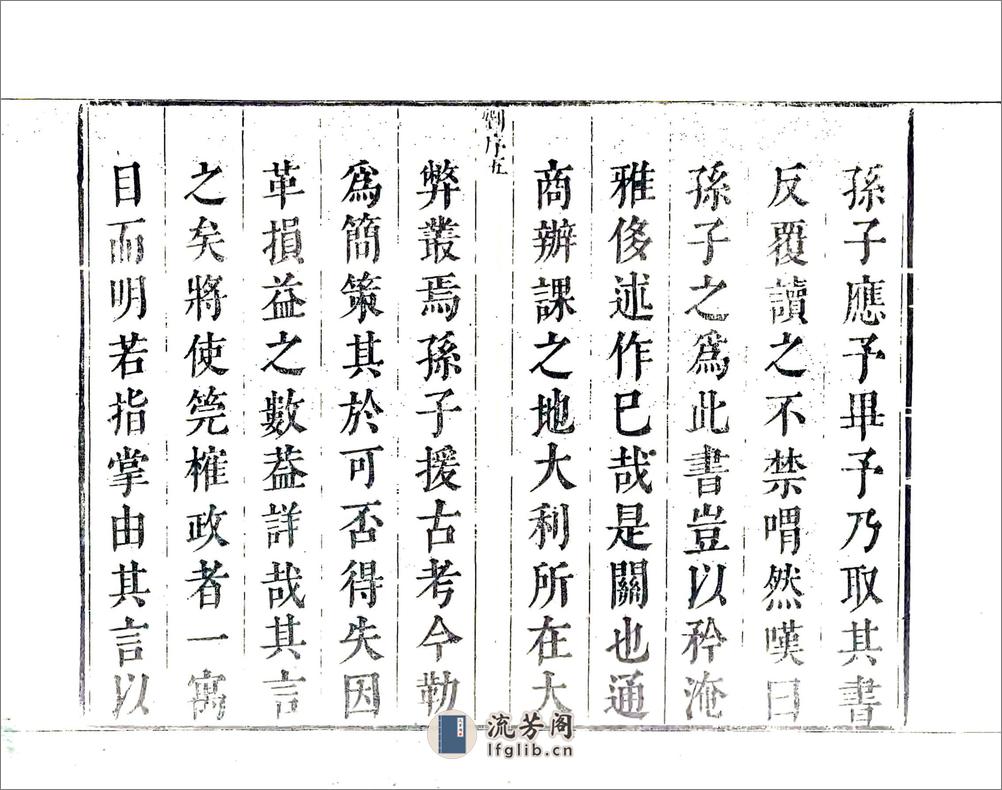 孫子應予畢予乃取其書
反覆讀之不禁喟然嘆曰
孫子之爲此書豈以矜淹
雅侈述作已哉是關也通
商辦課之地大利所在大
劉序五
弊叢焉孫子援古考今勒
爲簡策其於可否得失因
革損益之數葢詳哉其言
之矣將使筦榷政者一寓
目而明若指掌由其言以
流芳阁
lfglib.cn